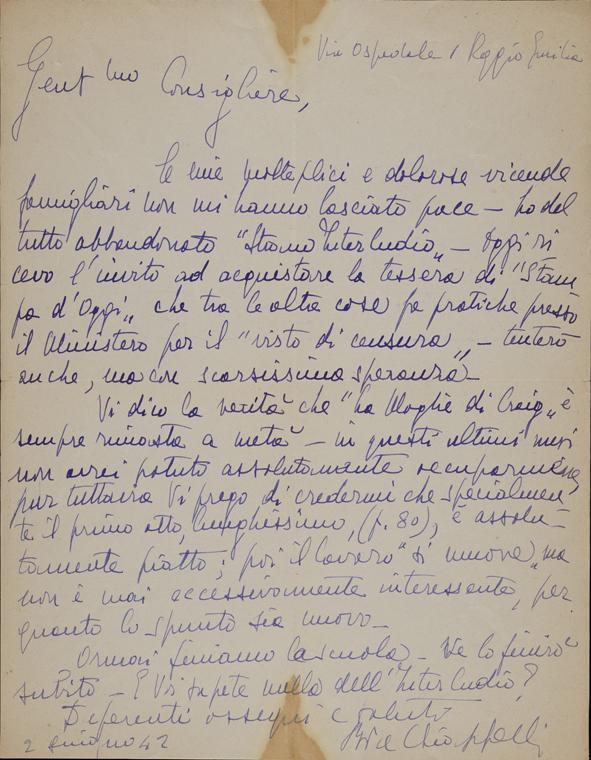 Via Ospedale 1 Reggio Emilia
Gent mo Consigliere,
Le mie molteplici e dolorose vicende
famigliari non mi hanno lasciato pace – ho del
tutto abbandonato "Strano Interludio„ – Oggi ri
cevo l'invito ad acquistare la tessera di "Stam
pa d'Oggi„ che tra le altre cose fa pratiche presso
il Ministero per il "visto di censura„ – tenterò
anche, ma con scarsissima speranza –
Vi dico la verità che "La Moglie di Craig„ è
sempre rimasta a metà – in questi ultimi mesi
non avrei potuto assolutamente occuparmene,
pur tuttavia Vi prego di credermi che specialmen
te il primo atto, lunghissimo, (p. 80), è assolu–
tamente piatto; poi il lavoro "si muove„ ma
non è mai eccessivamente interessante, per
quanto lo spunto sia nuovo –
Ormai finiamo la scuola – Ve lo finirò
subito – E Vi sapete nulla dell'Interludio?
Deferenti ossequi e saluti
2 giugno 42
Bice Chiappelli